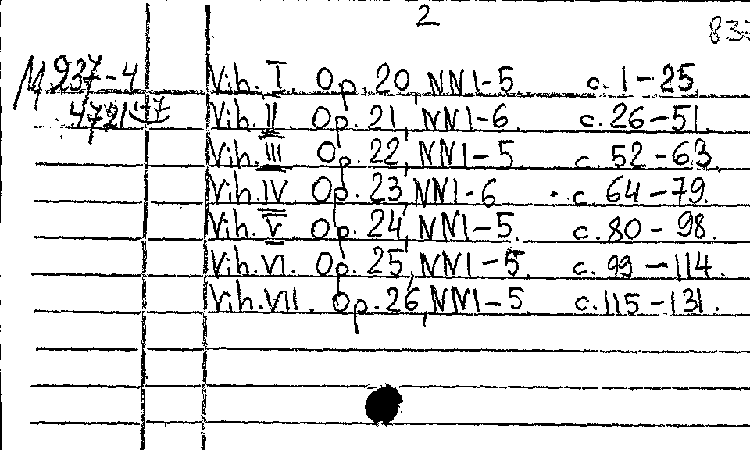 2
M 937-4 Vih. I Op. 20, NN1-5 c. 1-25
Vih. II Op. 21, NN1-6. c. 26-51.
Vih. III Op. 22, NN1-5 c. 52-63.
Vih. IV Op. 23, NN1-6 c. 64-79.
Vih. V Op. 24, NN1-5. c. 80-98.
Vih. VI. Op. 25, NN1-5. c. 99-114.
Vih. VII. Op. 26, NN1-5 c. 115-131.